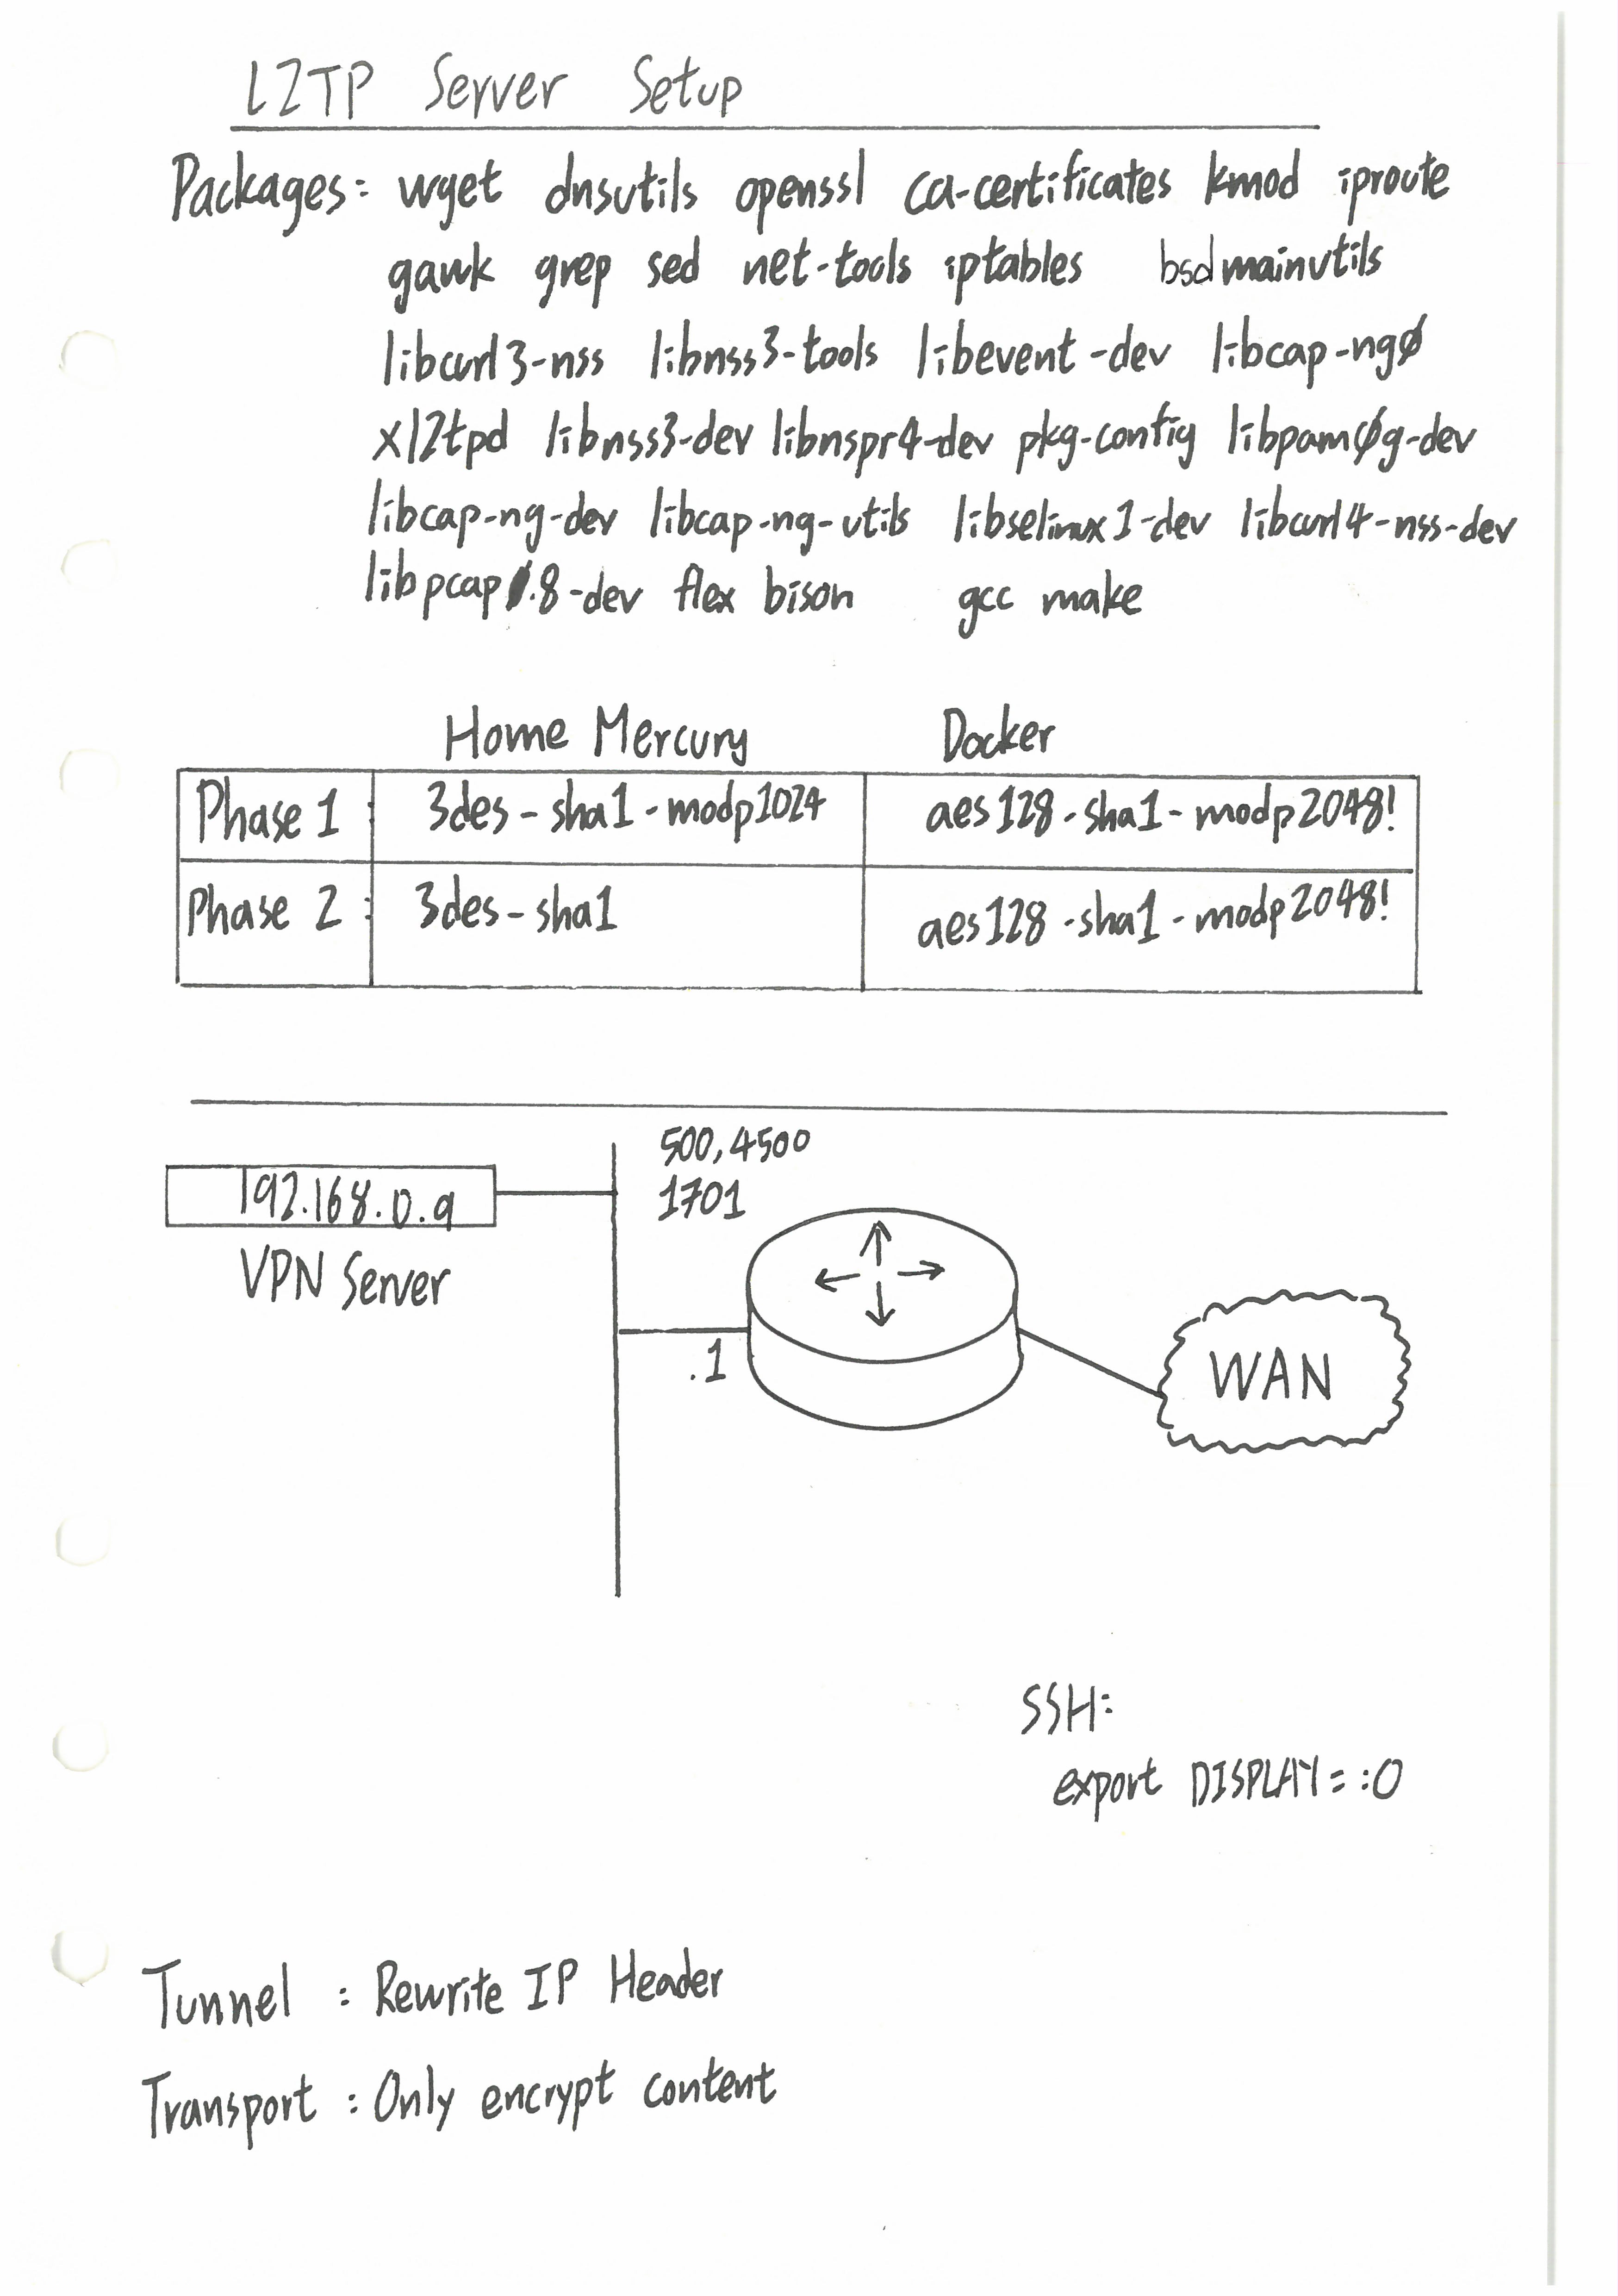 L2TP Server Setup
Packages: wget dnsutils openssl ca-certificates kmod iproute
gawk grep sed net-tools iptables bsdmainutils
libcurl3-nss libnss3-tools libevent-dev libcap-ng0
xl2tpd libnss3-dev libnspr4-dev pkg-config libpam0g-dev
libcap-ng-dev libcap-ng-utils libselinux1-dev libcurl4-nss-dev
libpcap0.8-dev flex bison gcc make
Home Mercury Docker
Phase 1 : 3des-sha1-modp1024 aes128-sha1-modp2048!
Phase 2 : 3des-sha1 aes128-sha1-modp2048!
500,4500
1701
192.168.0.9
VPN Server
.1
WAN
SSH:
export DISPLAY=:0
Tunnel : Rewrite IP Header
Transport : Only encrypt content